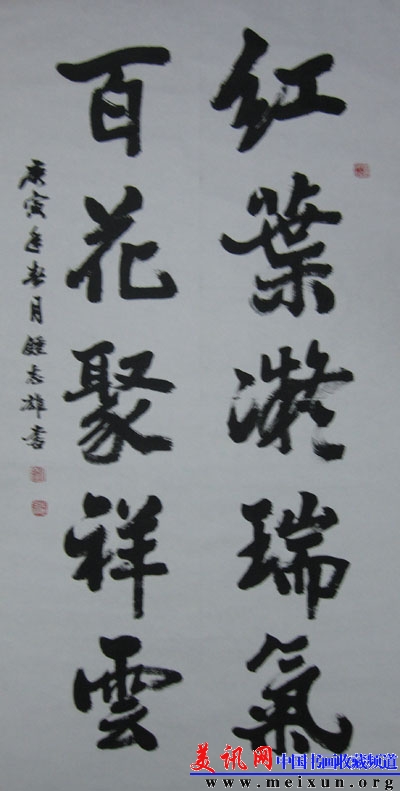 红葉凝瑞氣
百花聚祥雲
庚寅年春月鍾志雄書
美讯网 中国书画收藏频道
www.meixun.org